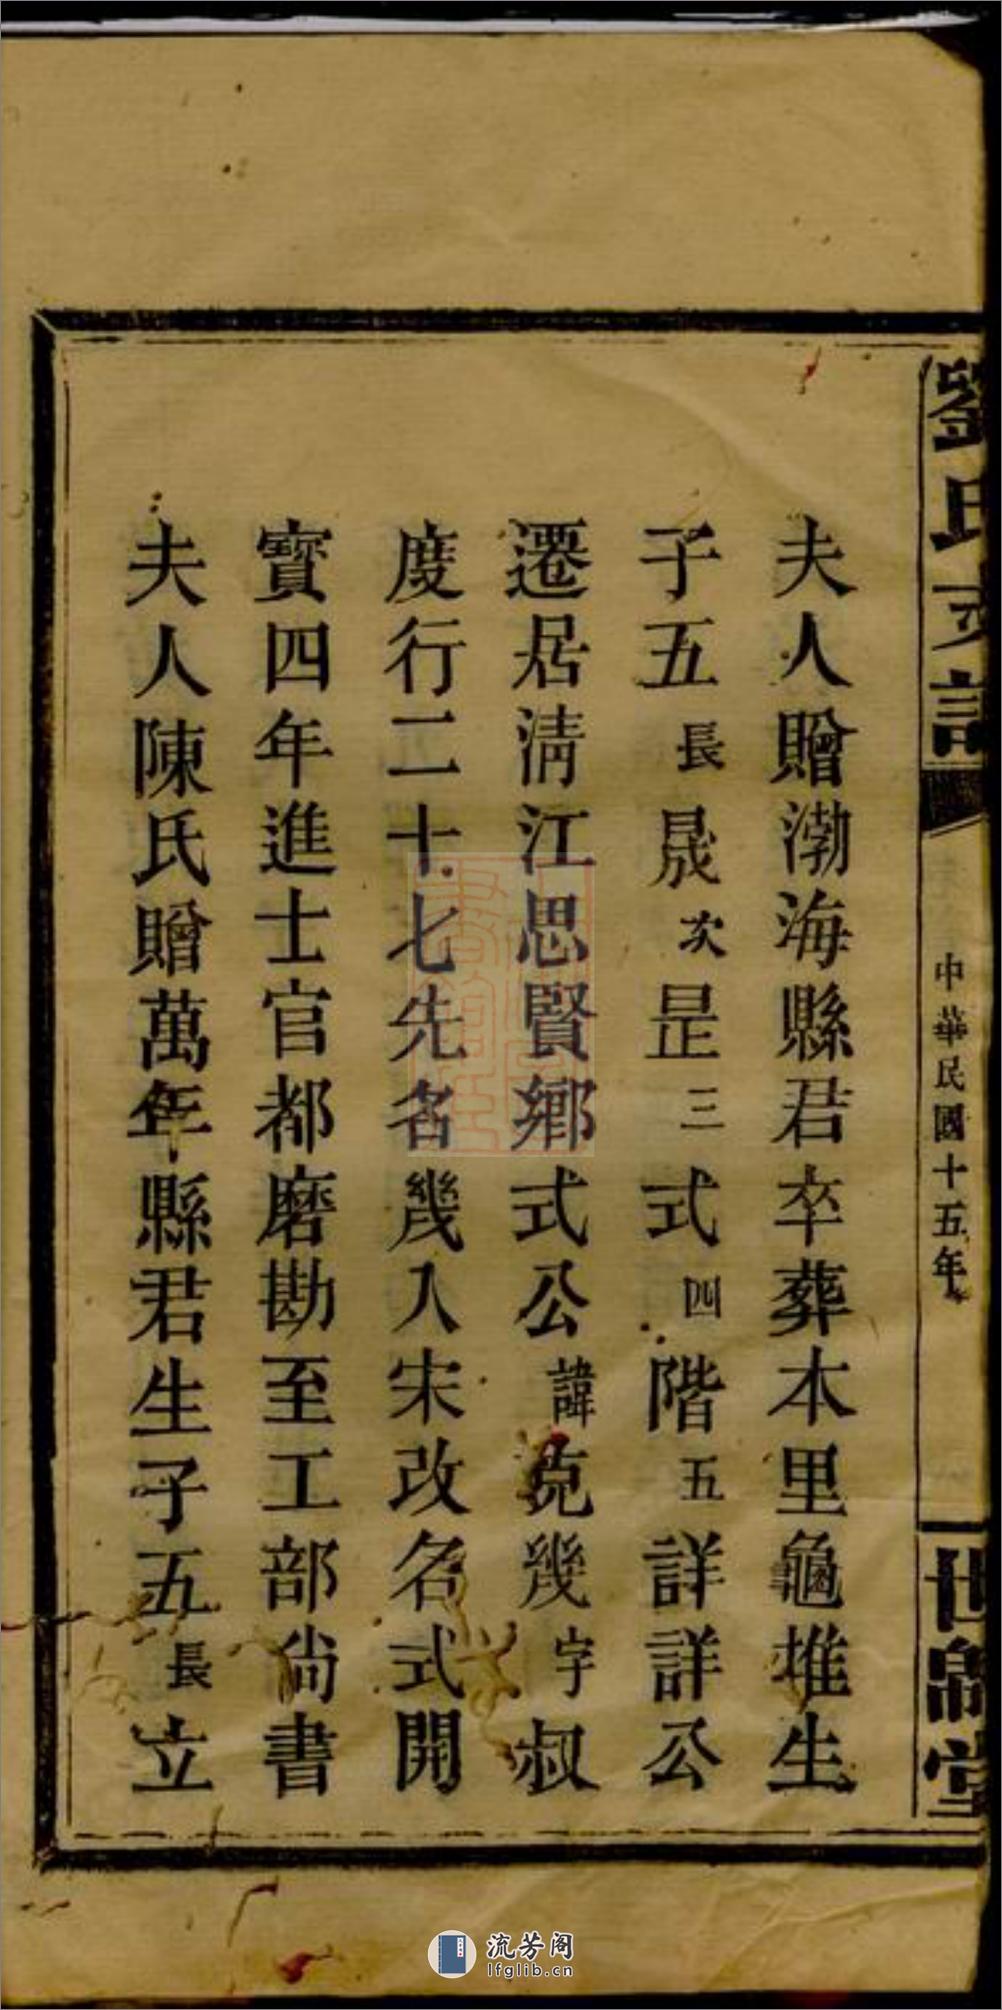 劉氏支譜
中華民國十五年
世綿堂
夫人贈渤海縣君卒葬本里龜堆生
子五長晟次昰三式四階五詳詳公
遷居清江思賢鄉式公諱克幾字叔
度行二十七先名幾入宋改名式開
寳四年進士官都磨勘至工部尚書
夫人陳氏贈萬年縣君生子五長立
流芳阁
lfglib.cn